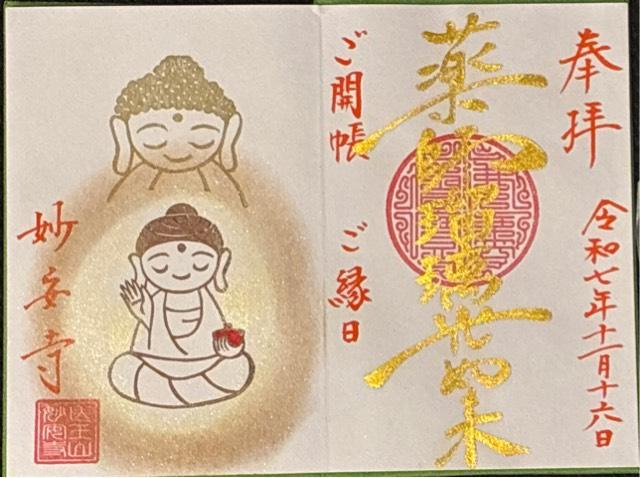 奉拝
令和七年十一月十六日
薬師瑠璃光如来
ご開帳 ご縁日
妙安寺
医王山
妙安寺